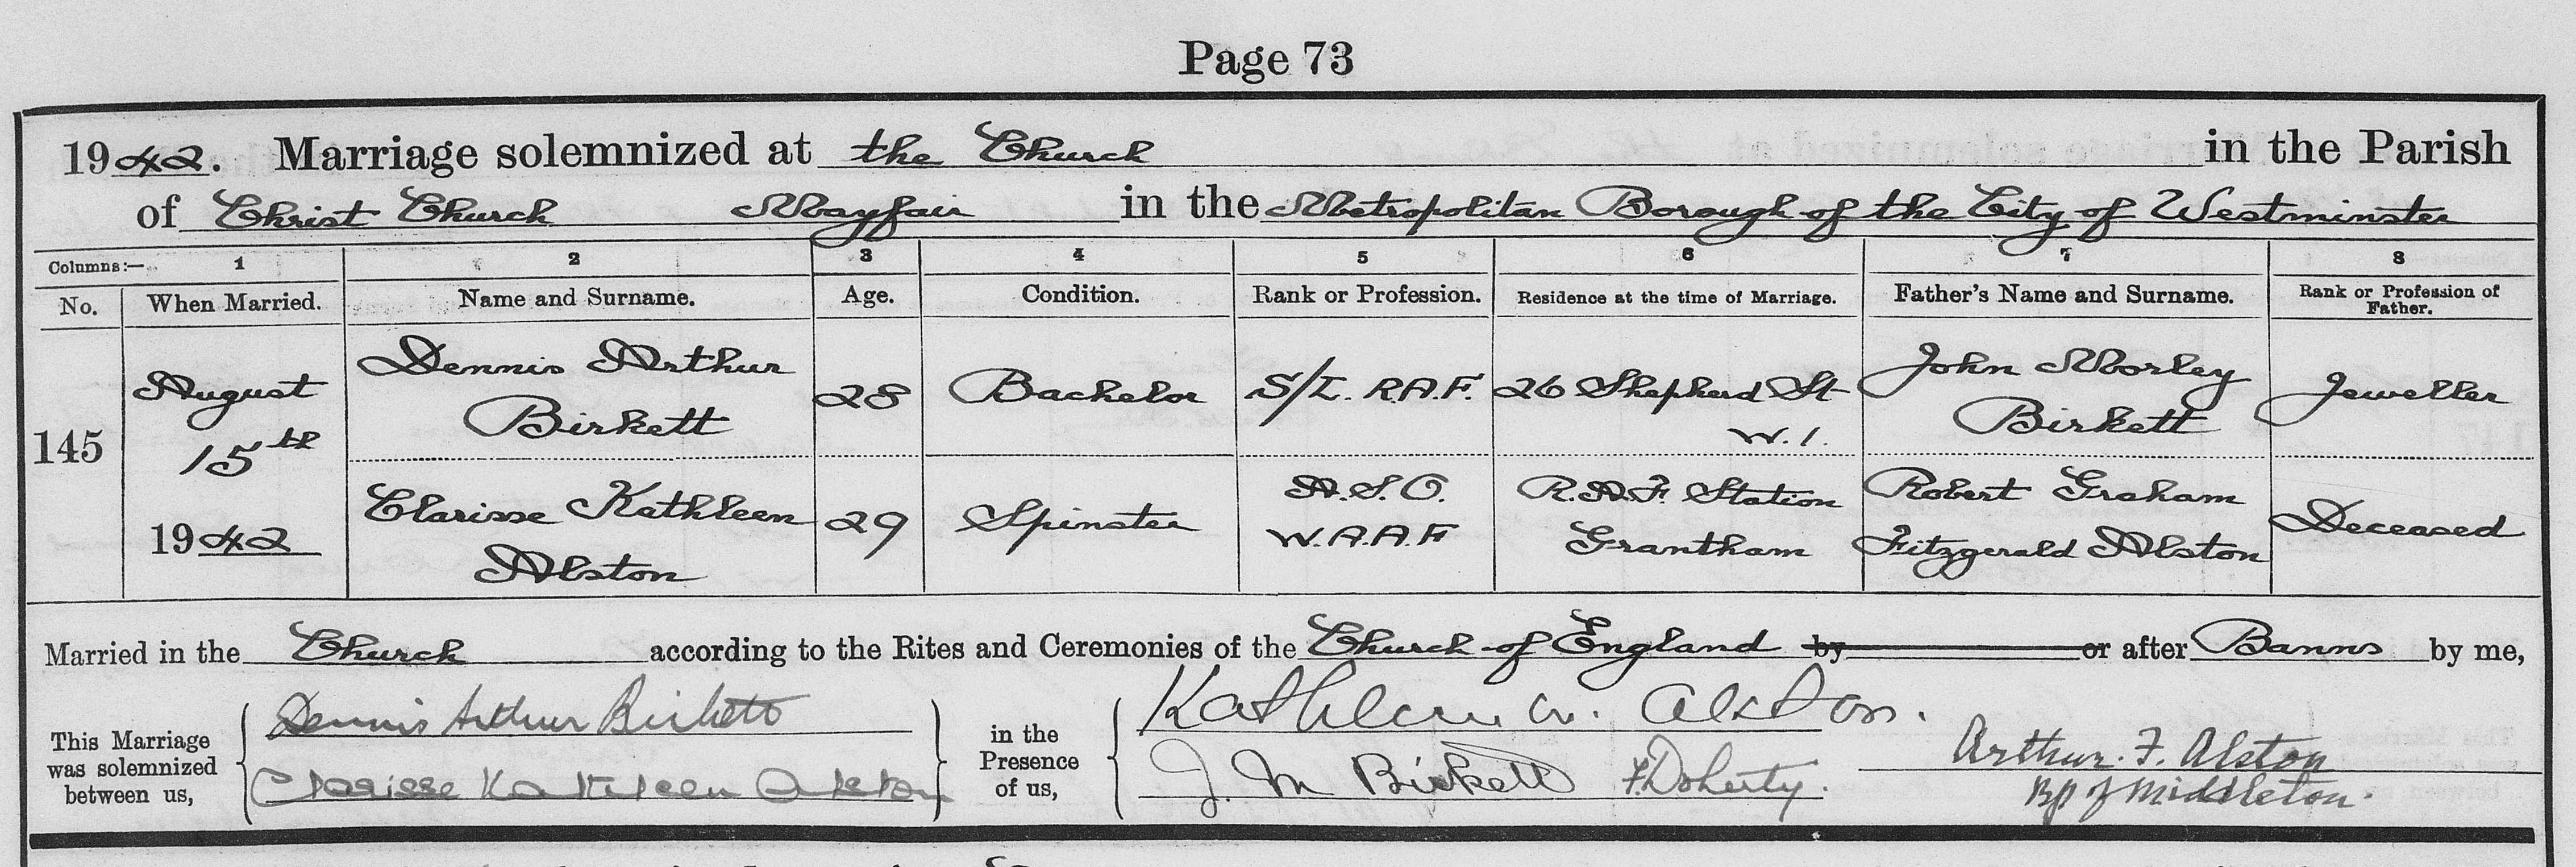 Page 73
1942. Marriage solemnized at the Church in the Parish
of Christ Church Mayfair in the Metropolitan Borough of the City of Westminster
Columns:— 1 2 3 4 5 6 7 8
No. When Married. Name and Surname. Age. Condition. Rank or Profession. Residence at the time of Marriage. Father's Name and Surname. Rank or Profession of Father.
145
August
15th
1942
Dennis Arthur
Birkett
28
Bachelor
S/L. R.A.F.
26 Shepherd St
W.1.
John Morley
Birkett
Jeweller
Clarisse Kathleen
Alston
29
Spinster
A.S.O.
W.A.A.F
R.A.F. Station
Grantham
Robert Graham
Fitzgerald Alston
Deceased
Married in the Church according to the Rites and Ceremonies of the Church of England by or after Banns by me,
This Marriage
was solemnized
between us,
Dennis Arthur Birkett
Clarisse Kathleen Alston
in the
Presence
of us,
Kathleen W. Alston.
J. M Birkett F. Doherty.
Arthur. F. Alston
Bp of Middleton.